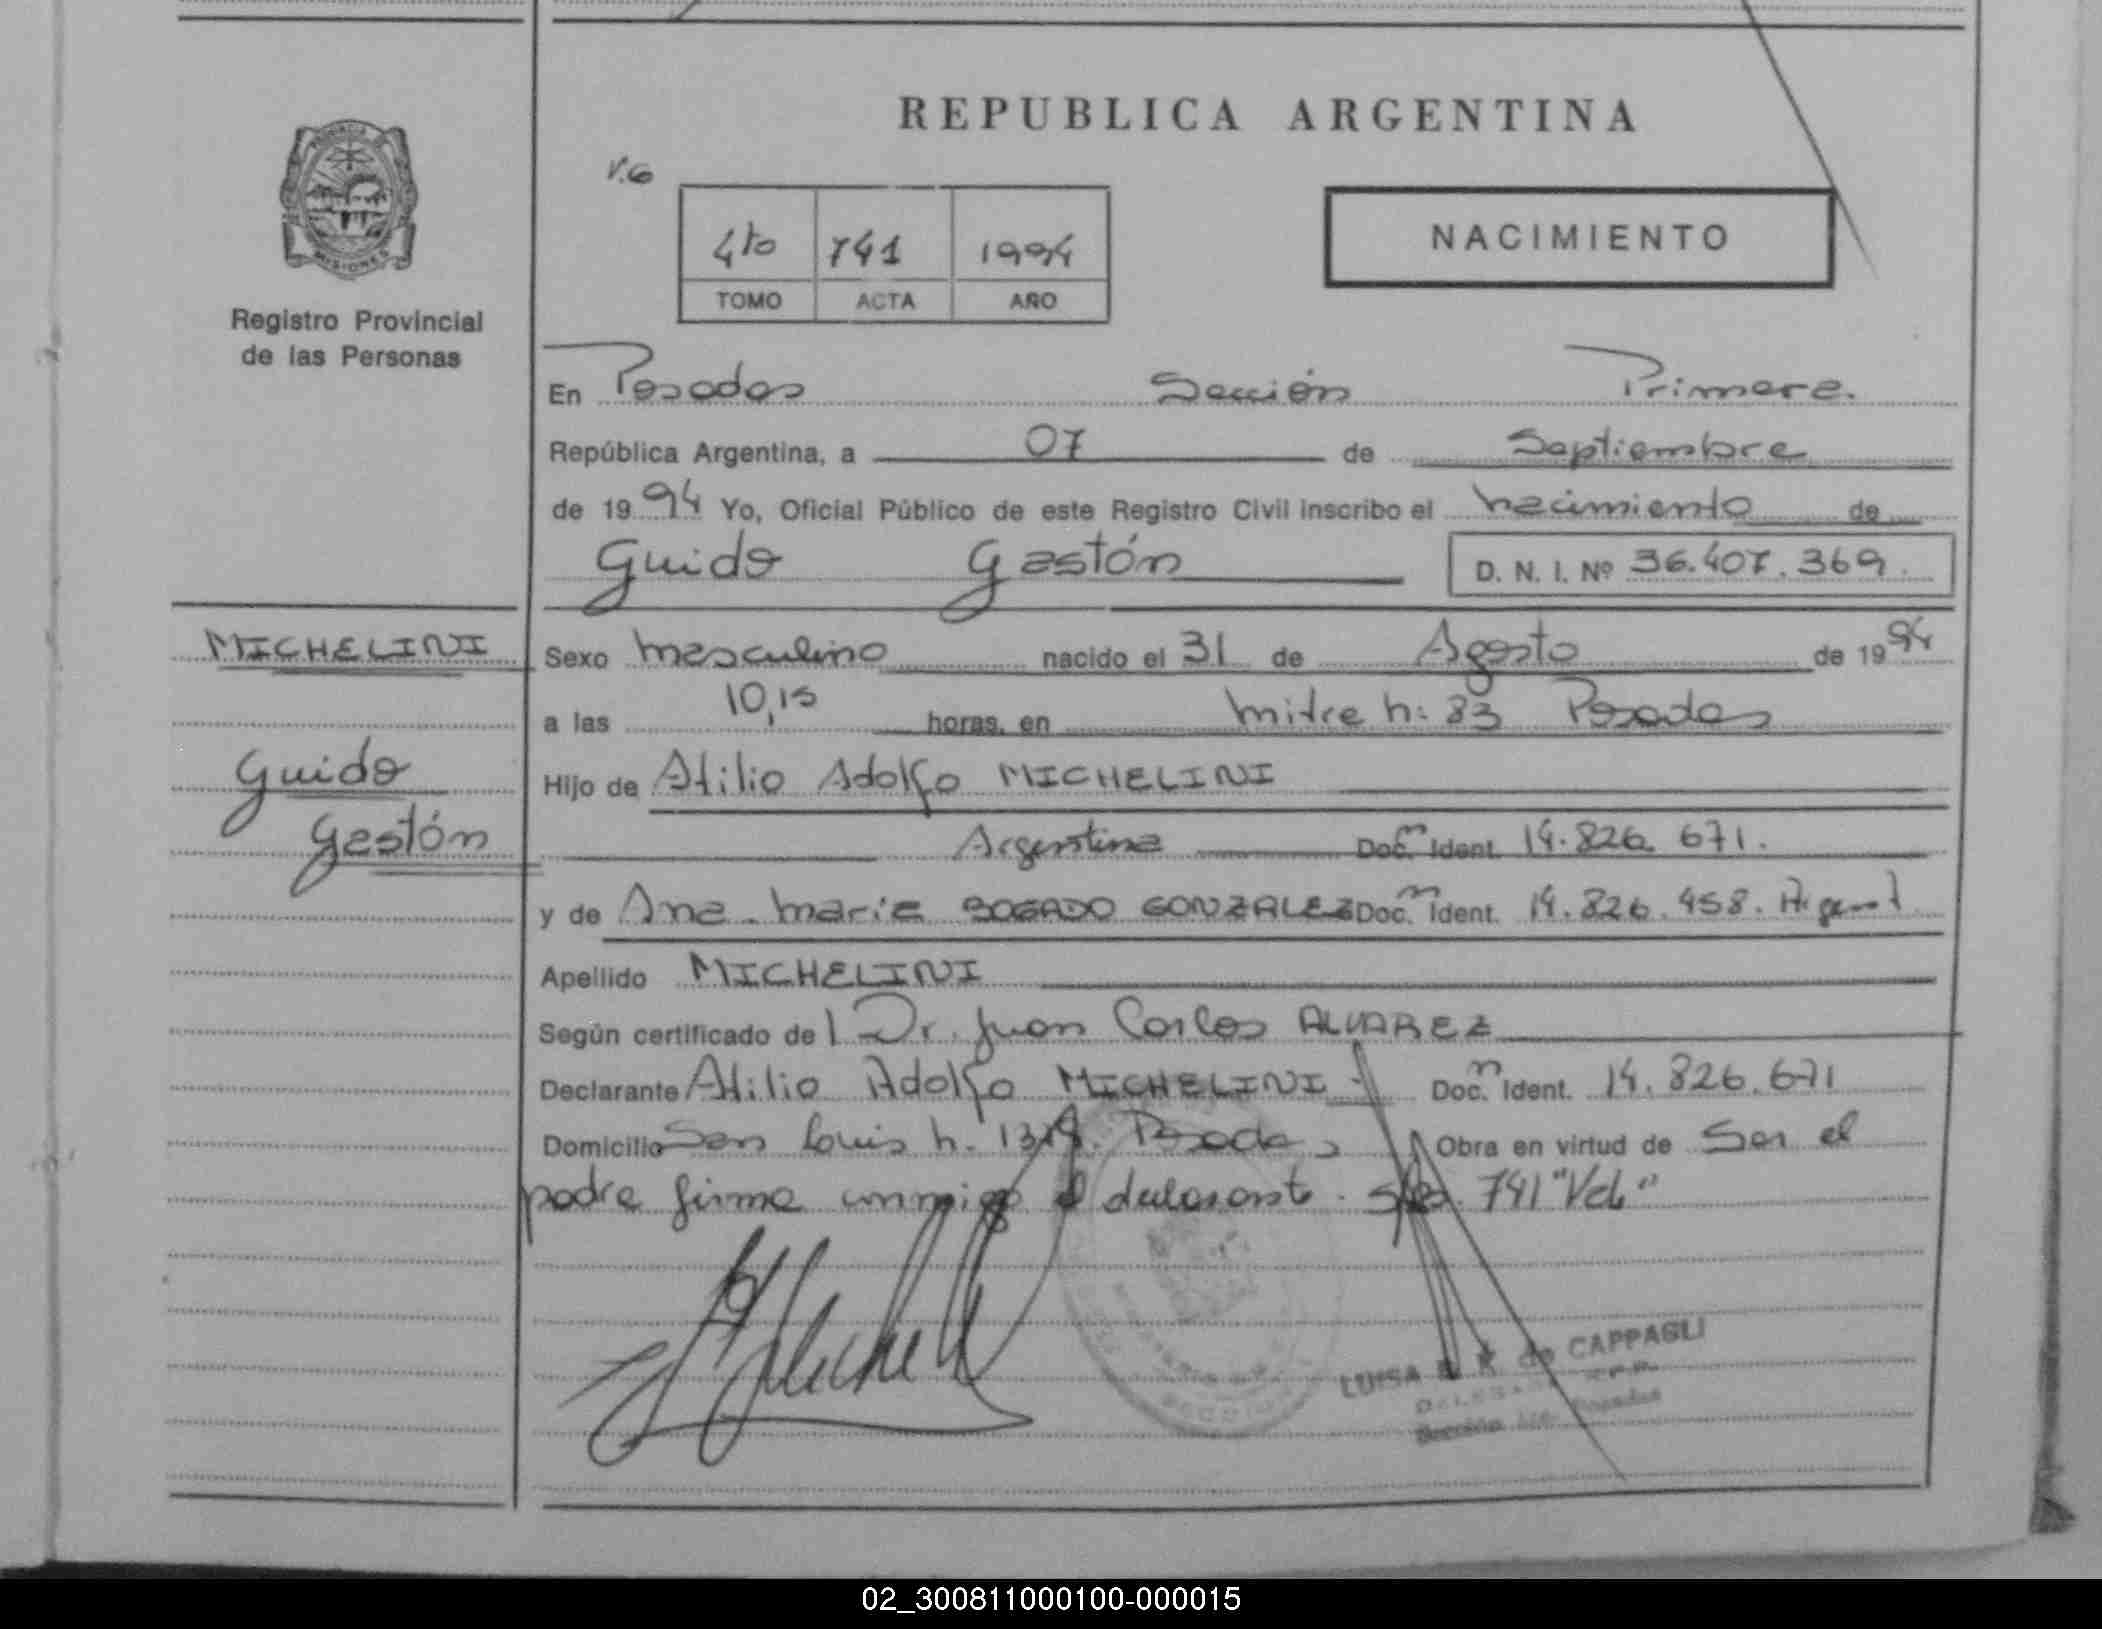 REPUBLICA ARGENTINA
MISIONES
Registro Provincial
de las Personas
V.G
4to 741 1994
TOMO ACTA AÑO
NACIMIENTO
En Posadas Sección Primera.
República Argentina, a 07 de Septiembre
de 1994 Yo, Oficial Público de este Registro Civil inscribo el nacimiento de
Guido Gastón D. N. I. Nº 36.407.369.
MICHELINI
Guido
Gastón
Sexo masculino nacido el 31 de Agosto de 1994
a las 10,15 horas, en mitre n: 83 Posadas
Hijo de Atilio Adolfo MICHELINI
Argentina Doc.m Ident. 14.826.671.
y de Ana María BOGADO GONZALEZ Doc.m Ident. 14.826.458. Argent
Apellido MICHELINI
Según certificado de l Dr. Juan Carlos ALVAREZ
Declarante Atilio Adolfo MICHELINI Doc.m Ident. 14.826.671
Domicilio San Luis n. Posadas Obra en virtud de Ser el
padre firma conmigo el declarante. 741 "Vale"
LUISA de CAPPAGLI
Sección Posadas
02_300811000100-000015